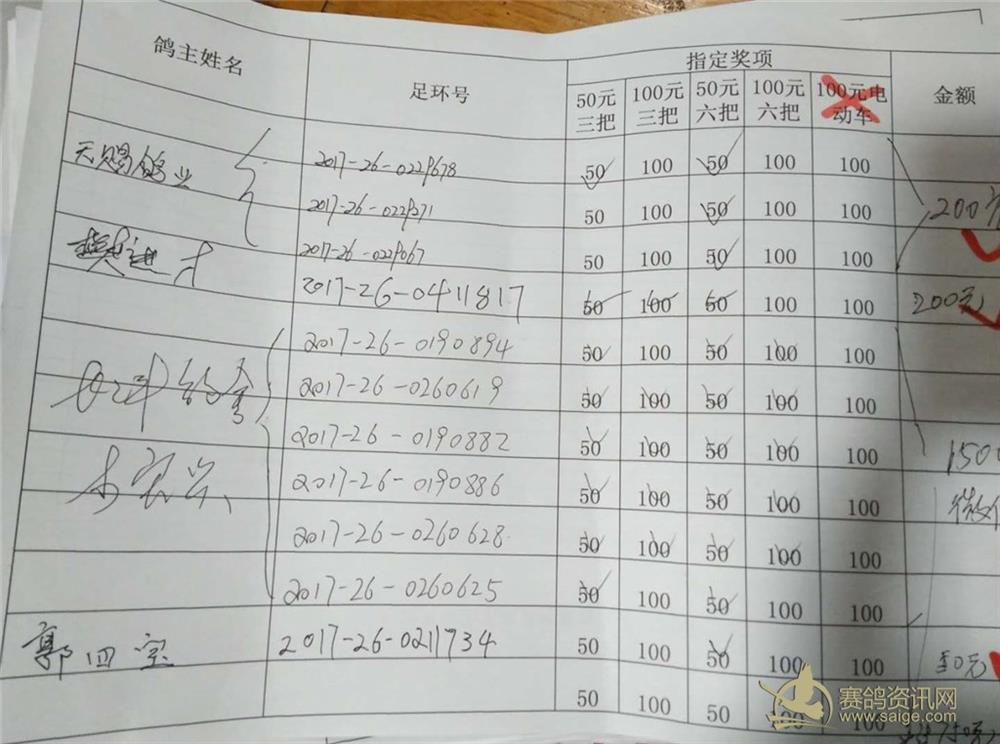 鸽主姓名 足环号 指定奖项 金额
50元三把 100元三把 50元六把 100元六把 100元电动车
天赐鸽业 2017-26-0229678 50 100 50 100 100
2017-26-0229271 50 100 50 100 100 200元
2017-26-0229067 50 100 50 100 100
2017-26-0411817 50 100 50 100 100 200元
2017-26-0190894 50 100 50 100 100
2017-26-0260619 50 100 50 100 100
2017-26-0190882 50 100 50 100 100 1500
2017-26-0190886 50 100 50 100 100
2017-26-0260628 50 100 50 100 100
2017-26-0260625 50 100 50 100 100
郭四宝 2017-26-0211734 50 100 50 100 100 50元
50 100 50 100 100
赛鸽资讯网
www.saige.com